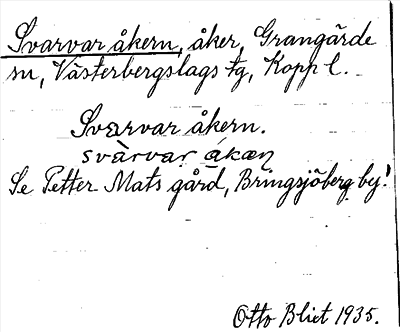 Svarvar åkern, åker, Grangärde
sn, Västerbergslags tg, Kopp l.
Svarvar åkern.
svàrvar ákæn
Se Petter Mats gård, Bringsjöberg by!
Otto Blixt 1935.